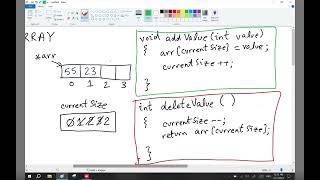 ARRAY
*arr
55 23
0 1 2 3
currentSize
void addValue (int value)
{ arr[currentSize] = value;
currentSize ++;
}
int deleteValue ( )
{ currentSize --;
return arr[currentSize];
}